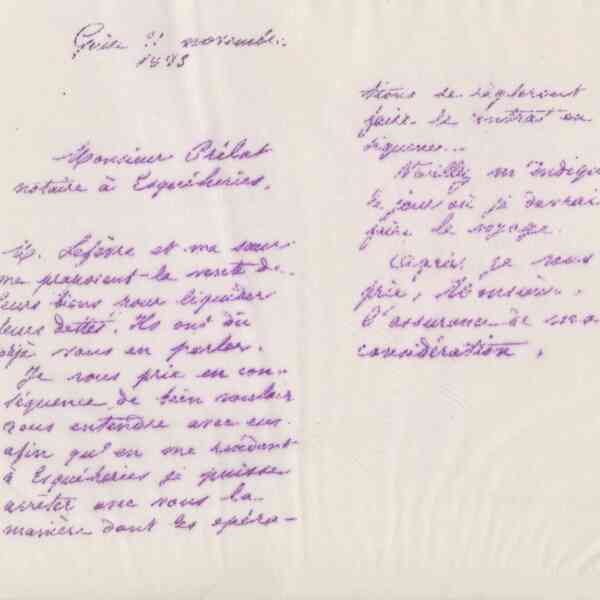 Guise 22 novembre
1883
Monsieur Prélat
notaire à Esquéheries.
M. Lefèvre et ma sœur
me proposent la vente de
leurs biens pour liquider
leurs dettes. Ils ont dû
déjà vous en parler.
Je vous prie en con-
séquence de bien vouloir
vous entendre avec eux
afin qu'en me rendant
à Esquéheries je puisse
arrêter avec vous la
manière dont les opéra-
tions se règleront
faire le contrat en
Veuillez m'indiquer
le jour où je devrai
faire le voyage.
Agréez, je vous
prie, Monsieur,
l'assurance de ma
considération.